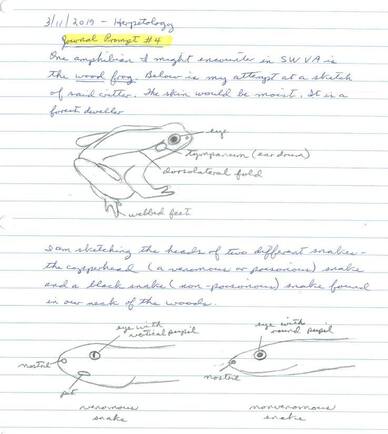 3/11/2019 - Herpetology
Journal Prompt #4
One amphibian I might encounter in SW VA is
the wood frog. Below is my attempt at a sketch
of said critter. The skin would be moist. It is a
forest dweller
eye
tympanum (ear drum)
dorsolateral fold
webbed feet
I am sketching the heads of two different snakes -
the copperhead (a venomous or poisonous) snake
and a black snake (non-poisonous) snake found
in our neck of the woods.
eye with
vertical pupil
nostril
pit
venomous
snake
eye with
round pupil
nostril
nonvenomous
snake